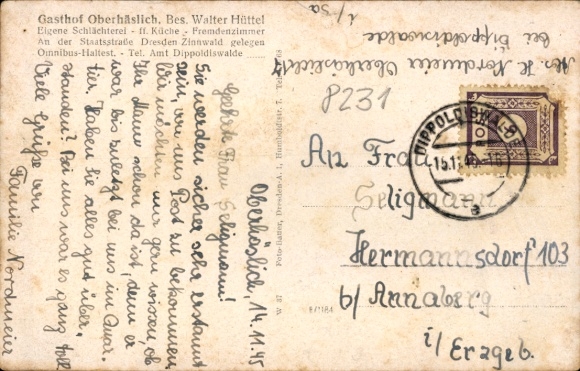 Gasthof Oberhäslich, Bes. Walter Hüttel
Eigene Schlächterei - ff. Küche - Fremdenzimmer
An der Staatsstraße Dresden-Zinnwald gelegen
Omnibus-Haltest. - Tel. Amt Dippoldiswalde
Oberhäslich, 14.11.45
Geehrte Frau Seligmann!
Sie werden sicher sehr erstaunt
sein, von uns Post zu bekommen.
Wir möchten nur gern wissen ob
Ihr Mann schon da ist, denn er
war bis zuletzt bei uns im Quar-
tier. Haben Sie alles gut über-
standen? Bei uns war es ganz toll
Viele Grüße von
Familie Nordmeier
Foto-Bader, Dresden-A. 1, Humboldtstr. 7.
W 37
Abs. H. Nordmeier Oberhäslich
bei Dippoldiswalde
8231
DIPPOLDISWALDE
15.11.45
An Frau
Seligmann
Hermannsdorf 103
b/ Annaberg
i/ Erzgeb.